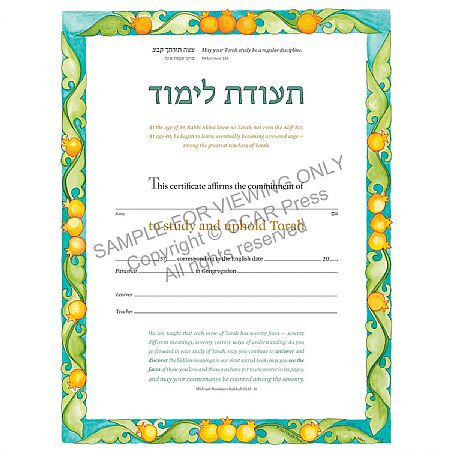 עשה תורתך קבע May your Torah study be a regular discipline.
פרקי אבות א:טו Pirkei Avot 1:15
תעודת לימוד
At the age of 39, Rabbi Akiva knew no Torah, not even the Alef-Bet.
At age 40, he began to learn, eventually becoming a revered sage —
among the greatest teachers of Torah.
This certificate affirms the commitment of
Name שם
to study and uphold Torah
57 corresponding to the English date 20
Parashat in Congregation
Learner
Teacher
We are taught that each verse of Torah has seventy faces — seventy
different meanings, seventy correct ways of understanding. As you
go forward in your study of Torah, may you continue to uncover and
discover the hidden meanings in our most sacred book; may you see the
faces of those you love and those you have yet to encounter in its pages;
and may your countenance be counted among the seventy.
Midrash Numbers Rabbah 13:15-16
SAMPLE-FOR VIEWING ONLY
Copyright © CCAR Press
All rights reserved